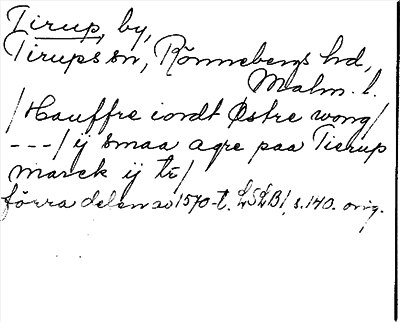 Tirup, by,
Tirups sn, Rönnebergs hd,
Malm. l.
/Hauffre iordt Østre wong/
---/ ij smaa agre paa Tierup
marck ij tr/
förra delen av 1570-t. LSLB1, s. 140. orig.